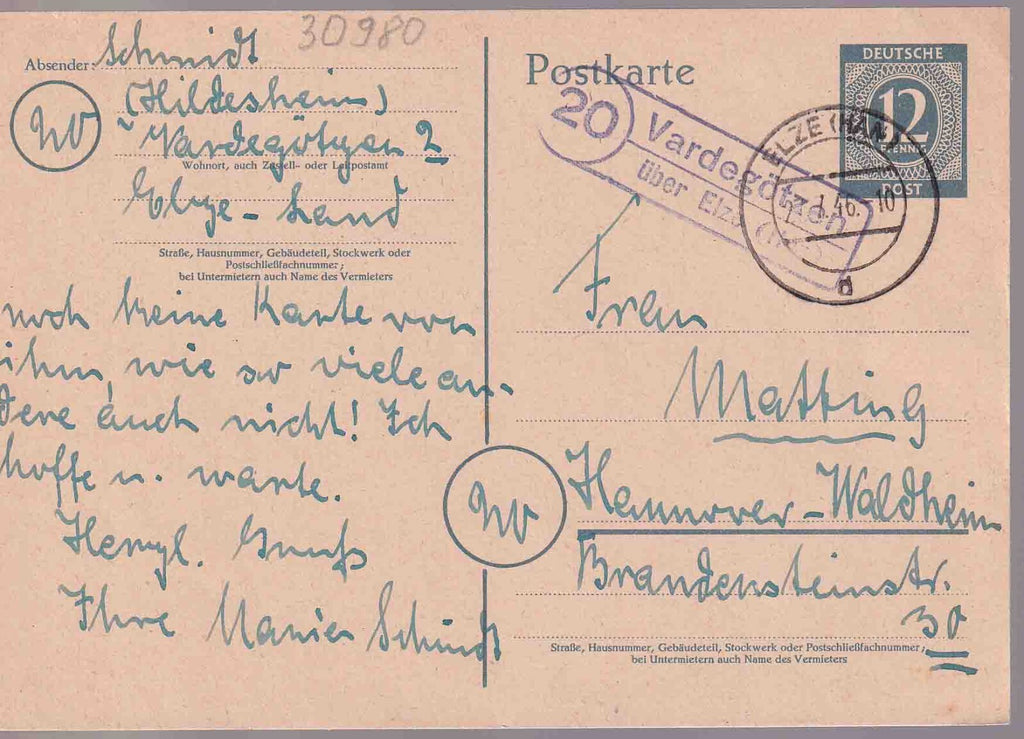 30980
Absender: Schmidt
(Hildesheim)
20
Vardegötzen 2
Wohnort, auch Zustell- oder Leitpostamt
Elze-Land
Straße, Hausnummer, Gebäudeteil, Stockwerk oder
Postschließfachnummer;
bei Untermietern auch Name des Vermieters
noch keine Karte von
ihm, wie so viele an-
dere auch nicht! Ich
hoffe u. warte.
Herzl. Gruß
Ihre Schmidt
Postkarte
DEUTSCHE
12
PFENNIG
POST
20
Vardegötzen
über Elze
ELZE (HAN)
46.-10
a
Frau
Matting
20
Hannover-Waldheim
Brandensteinstr.
30
Straße, Hausnummer, Gebäudeteil, Stockwerk oder Postschließfachnummer;
bei Untermietern auch Name des Vermieters